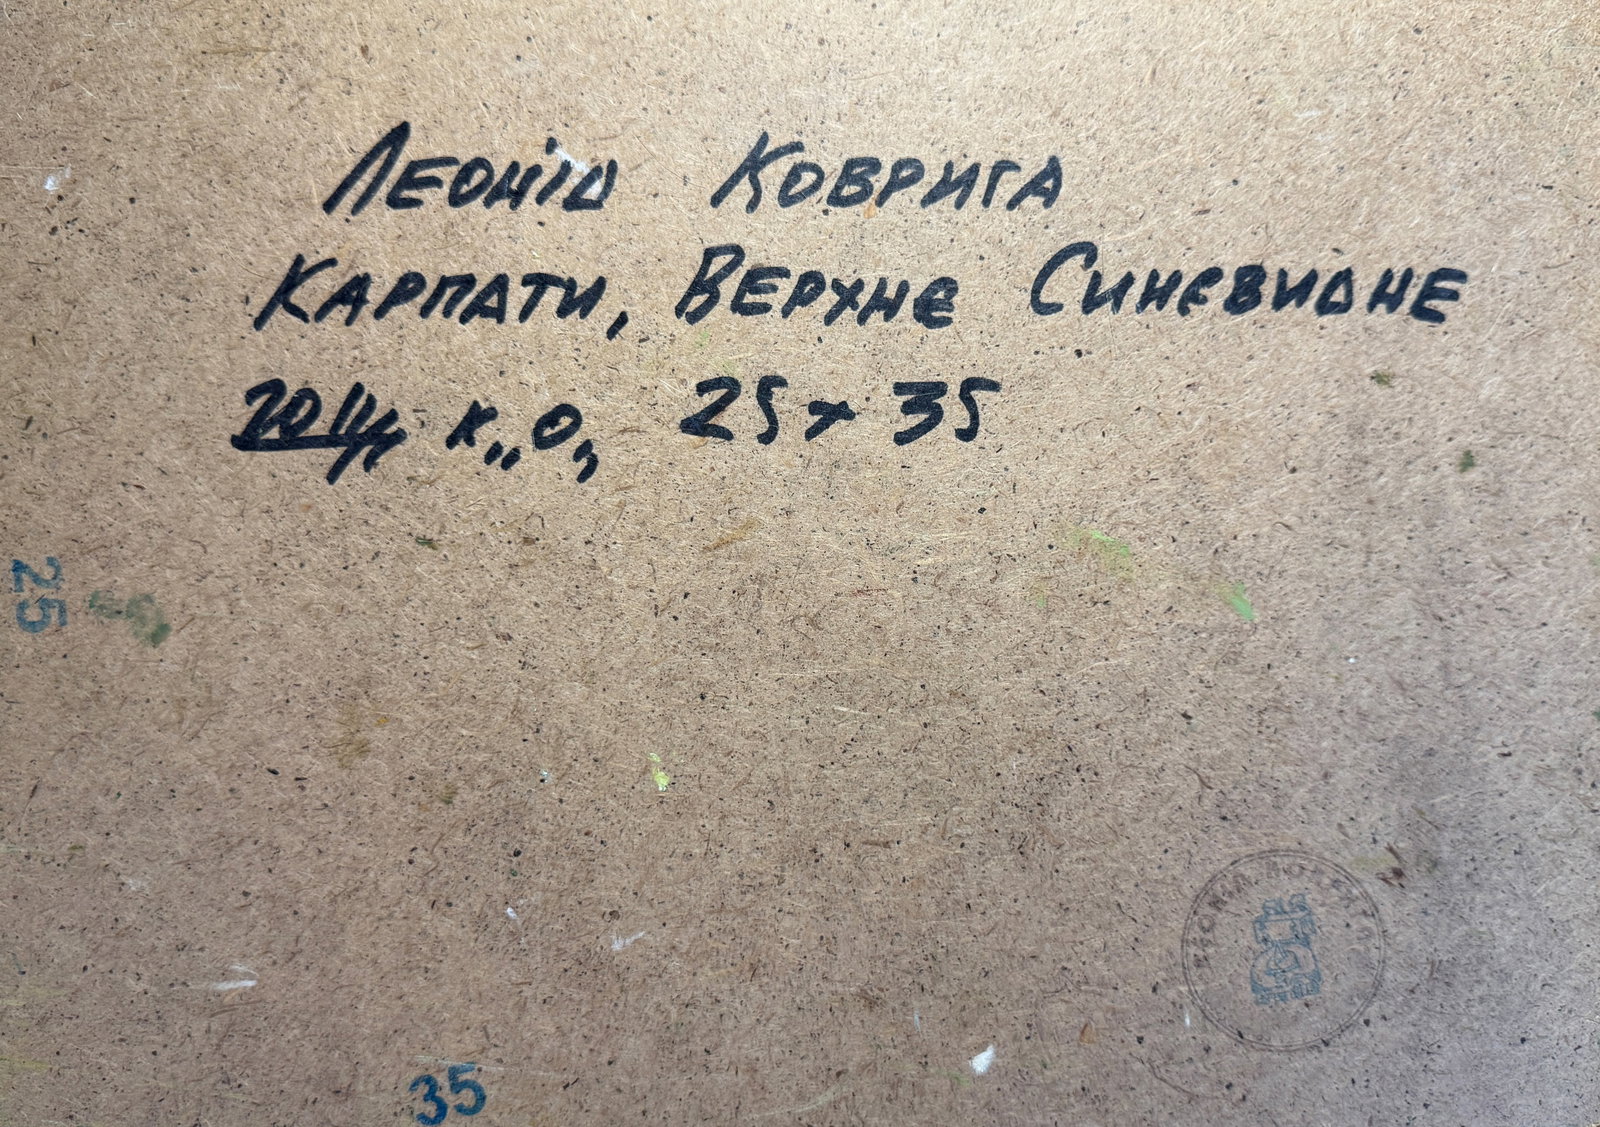 Леонід Коврига
Карпати, Верхне Синевидне
2011, к., о., 25 x 35
25
35